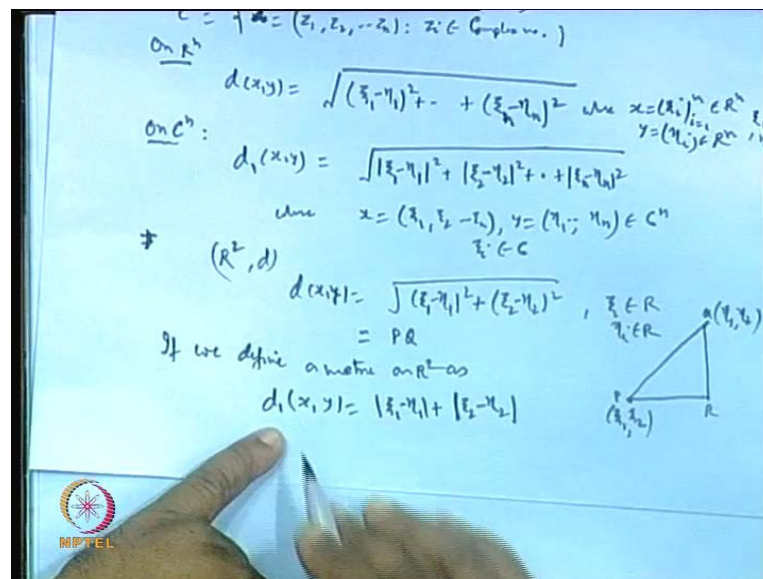 C = { = (z₁, z₂, ..zₙ): zᵢ ∈ Complex no. }
On Rʰ
d(x,y) = √(ξ₁-η₁)²+ - + (ξₙ-ηₙ)² where x=(ξᵢ)ⁿᵢ₌₁ ∈ Rⁿ
y=(ηᵢ) ∈ Rⁿ,
On Cʰ:
d₁(x,y) = √|ξ₁-η₁|² + |ξ₂-η₂|² + · + |ξₙ-ηₙ|²
where x = (ξ₁, ξ₂ -ξₙ), y = (η₁, ηₙ) ∈ Cⁿ
ξᵢ ∈ C
(R², d)
d(x,y)= √(ξ₁-η₁)²+(ξ₂-η₂)² , ξᵢ ∈ R
ηᵢ ∈ R
= PQ
If we define a metric on R² as
d₁(x,y)= |ξ₁-η₁| + |ξ₂-η₂|
Q(η₁,η₂)
P
(ξ₁,ξ₂)
R
NPTEL